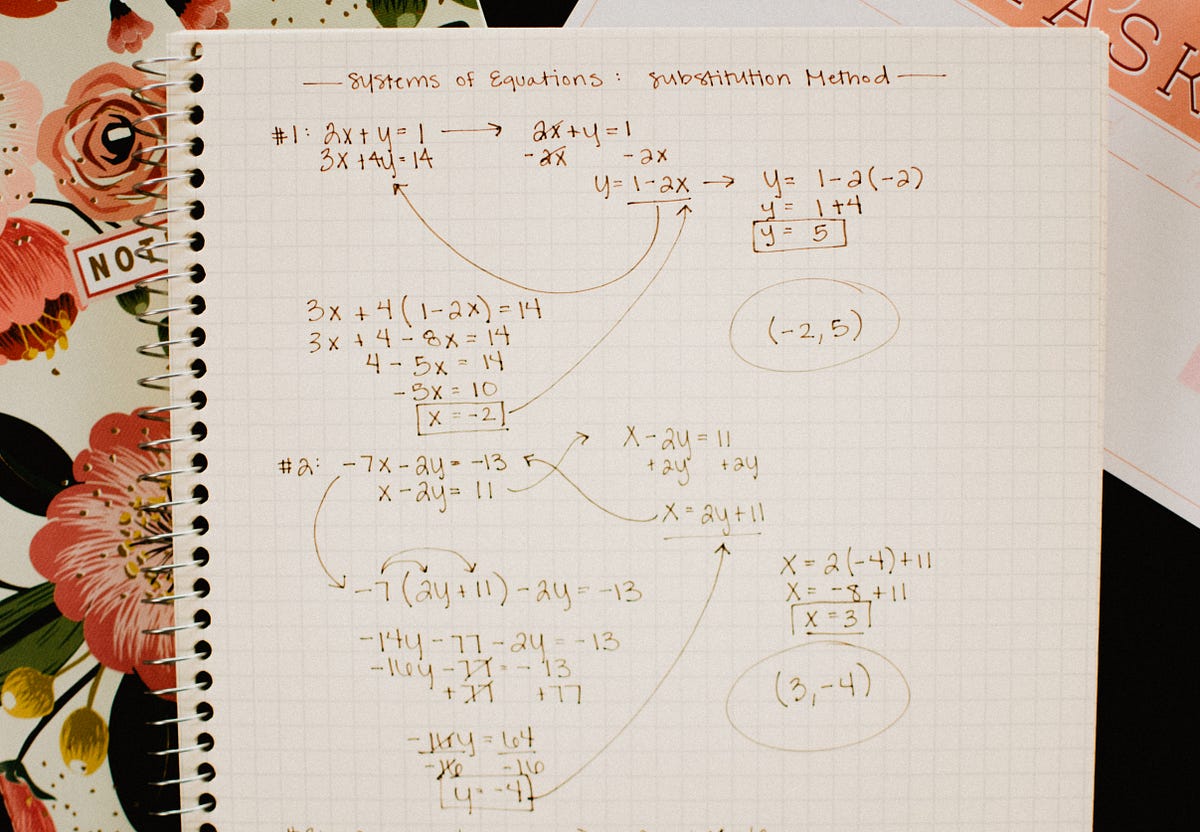 Systems of Equations: Substitution Method
#1: 2x + y = 1 → 2x + y = 1
3x + 4y = 14 -2x -2x
y = 1 - 2x → y = 1 - 2(-2)
y = 1 + 4
y = 5
3x + 4(1 - 2x) = 14
3x + 4 - 8x = 14
4 - 5x = 14
-5x = 10
x = -2
(-2, 5)
#2: -7x - 2y = -13
x - 2y = 11
x - 2y = 11
+2y +2y
x = 2y + 11
-7(2y + 11) - 2y = -13
-14y - 77 - 2y = -13
-16y - 77 = -13
+77 +77
-16y = 64
-16 -16
y = -4
x = 2(-4) + 11
x = -8 + 11
x = 3
(3, -4)
NOT
TASK